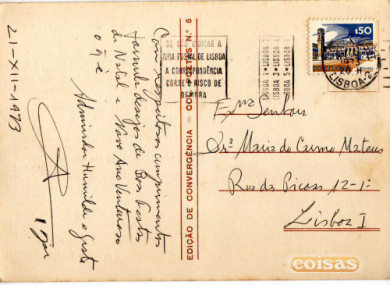 21-XII-1973
Com respeitosos cumprimentos
desejos de Boas Festas
de Natal e Novo Ano Venturoso
Admirador Humilde e Grato
EDIÇÃO DE CONVERGÊNCIA - CORPOS N.º 5
SE NÃO INDICAR A
ZONA POSTAL DE LISBOA
A CORRESPONDÊNCIA
CORRE O RISCO DE
DEMORA
LISBOA 1
LISBOA 3
LISBOA 5
1$50
LISBOA-2
Exmª Senhora
Drª Maria do Carmo Mateus
Rua da Picoas 12-1º
Lisboa 1
coisas